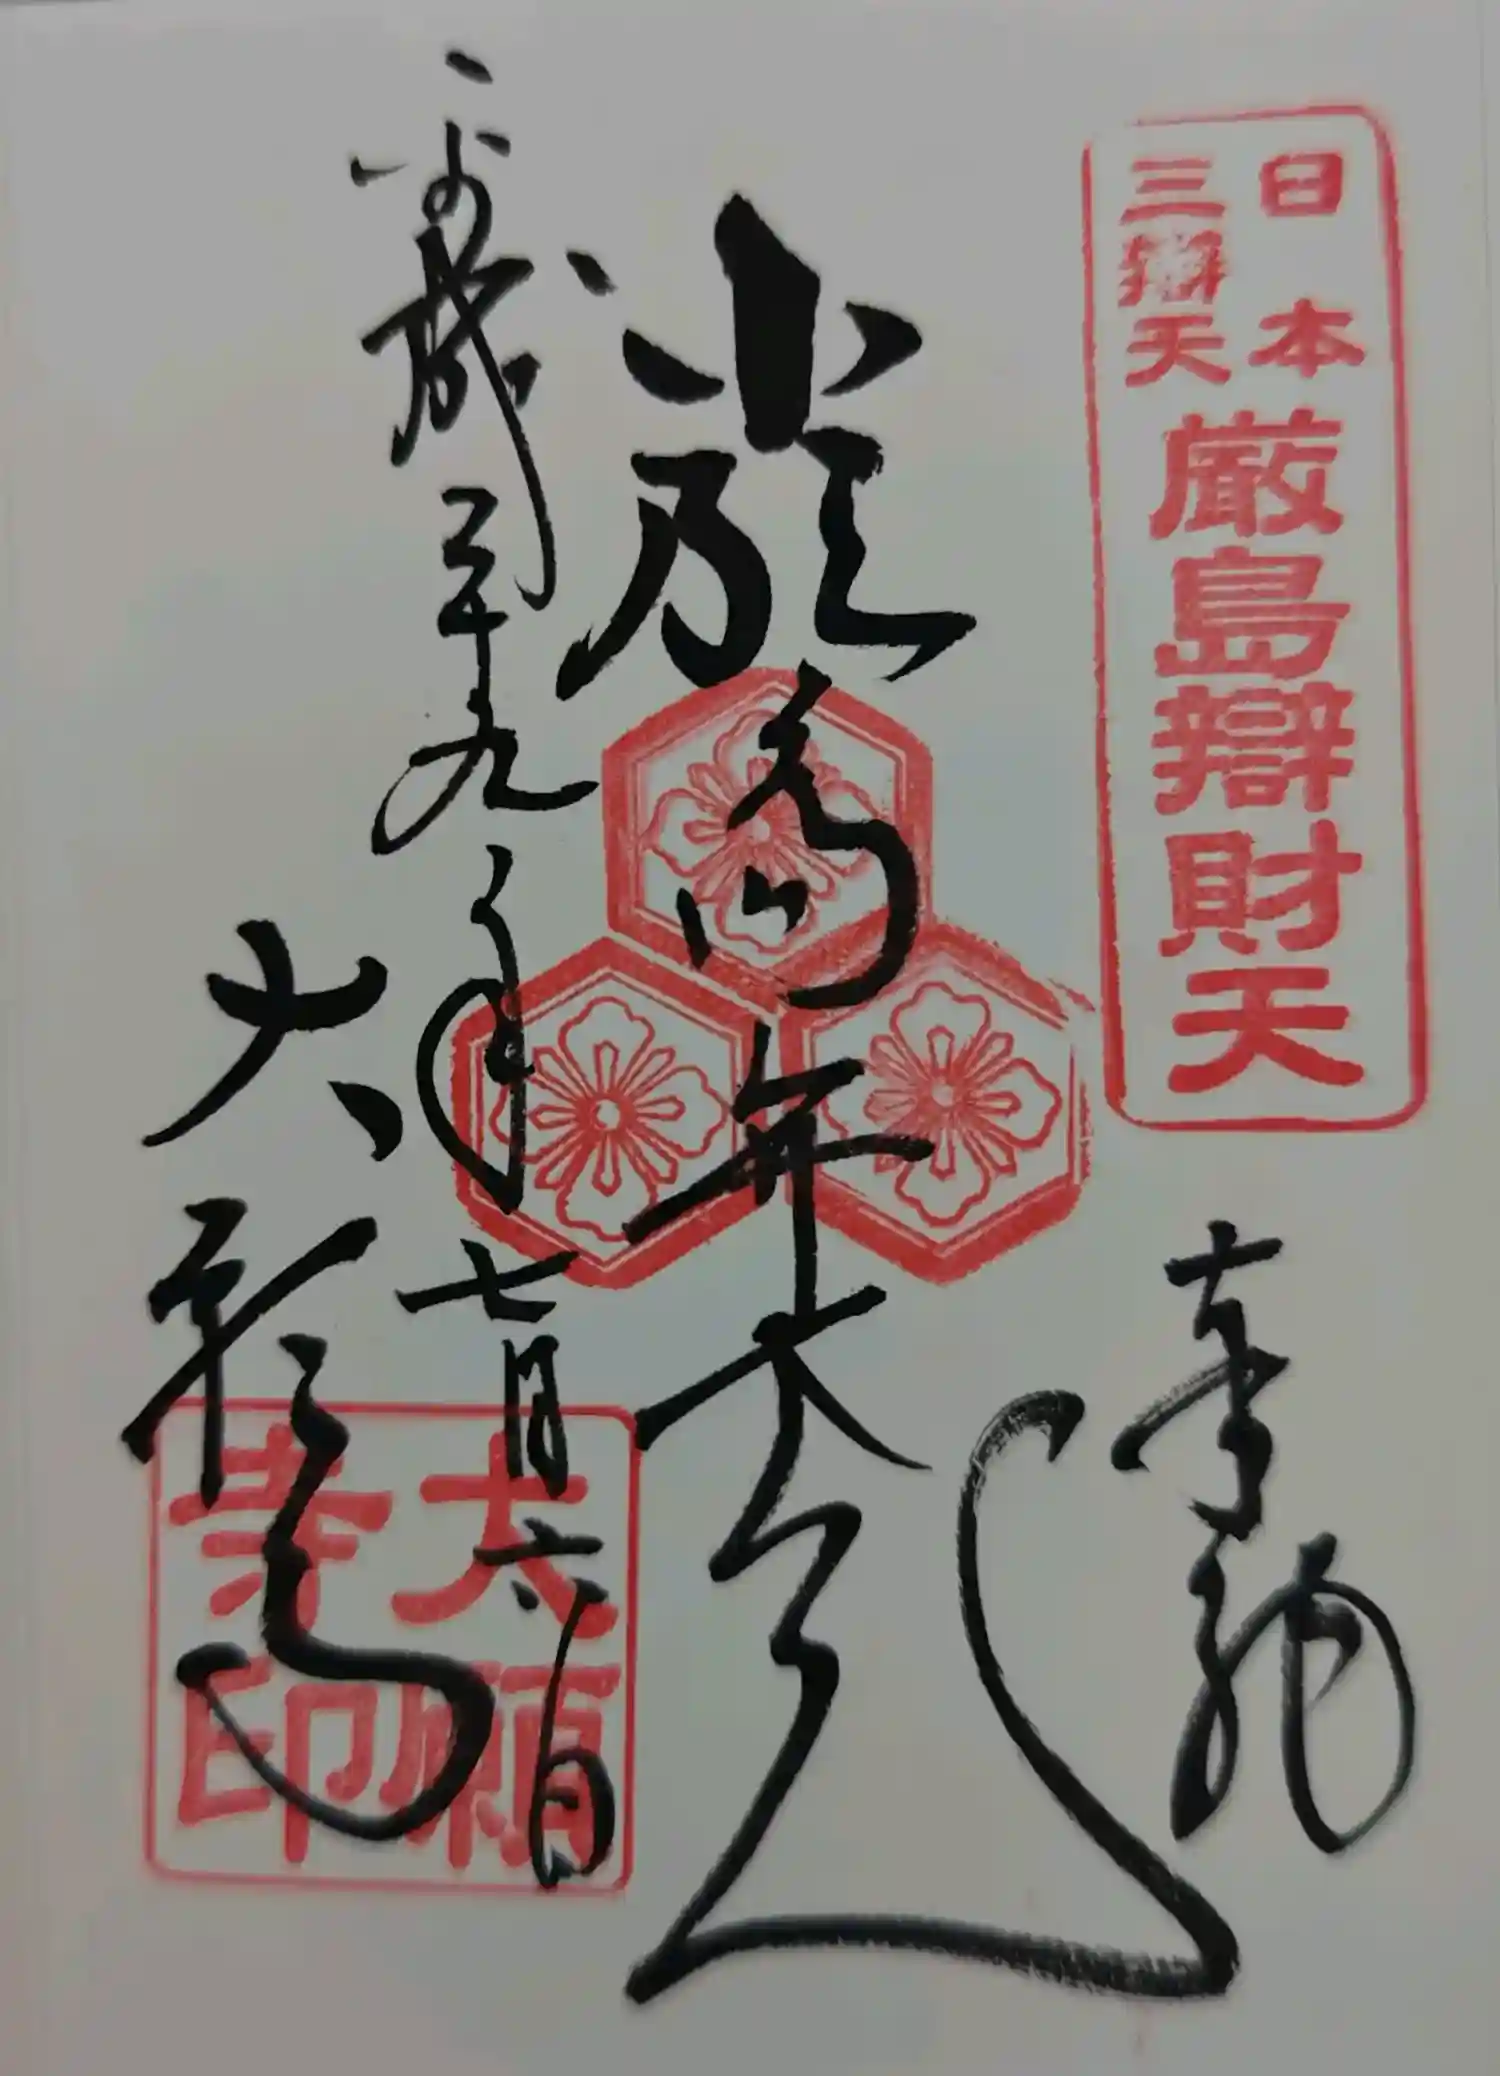 日本
三辯天
厳島辯財天
奉拝
嚴島弁才天
平成二十九年七月六日
大願寺
大願
寺印